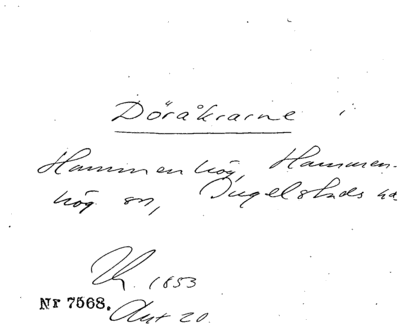 Döråkrarne i
Hammenhög, Hammen-
hög sn, Ingelstads hd
1853
Nr 7568. Akt 20